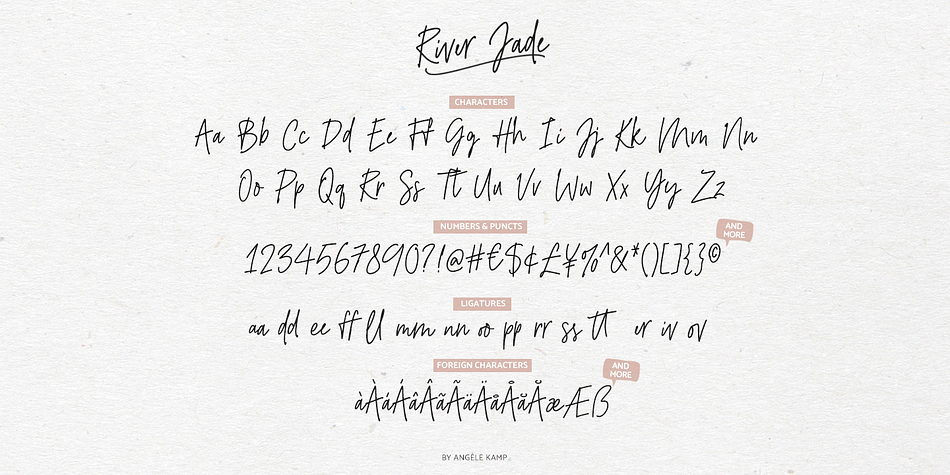 River Jade
CHARACTERS
Aa Bb Cc Dd Ee Ff Gg Hh Ii Jj Kk Mm Nn
Oo Pp Qq Rr Ss Tt Uu Vv Ww Xx Yy Zz
NUMBERS & PUNCTS
AND MORE
1234567890?!@#€$¢£¥%^&*()[]{}©
LIGATURES
aa dd ee ff ll mm nn oo pp rr ss tt er iv ov
FOREIGN CHARACTERS
AND MORE
àÀáÁâÂãÃäÄåÅăĂæÆß
BY ANGÈLE KAMP